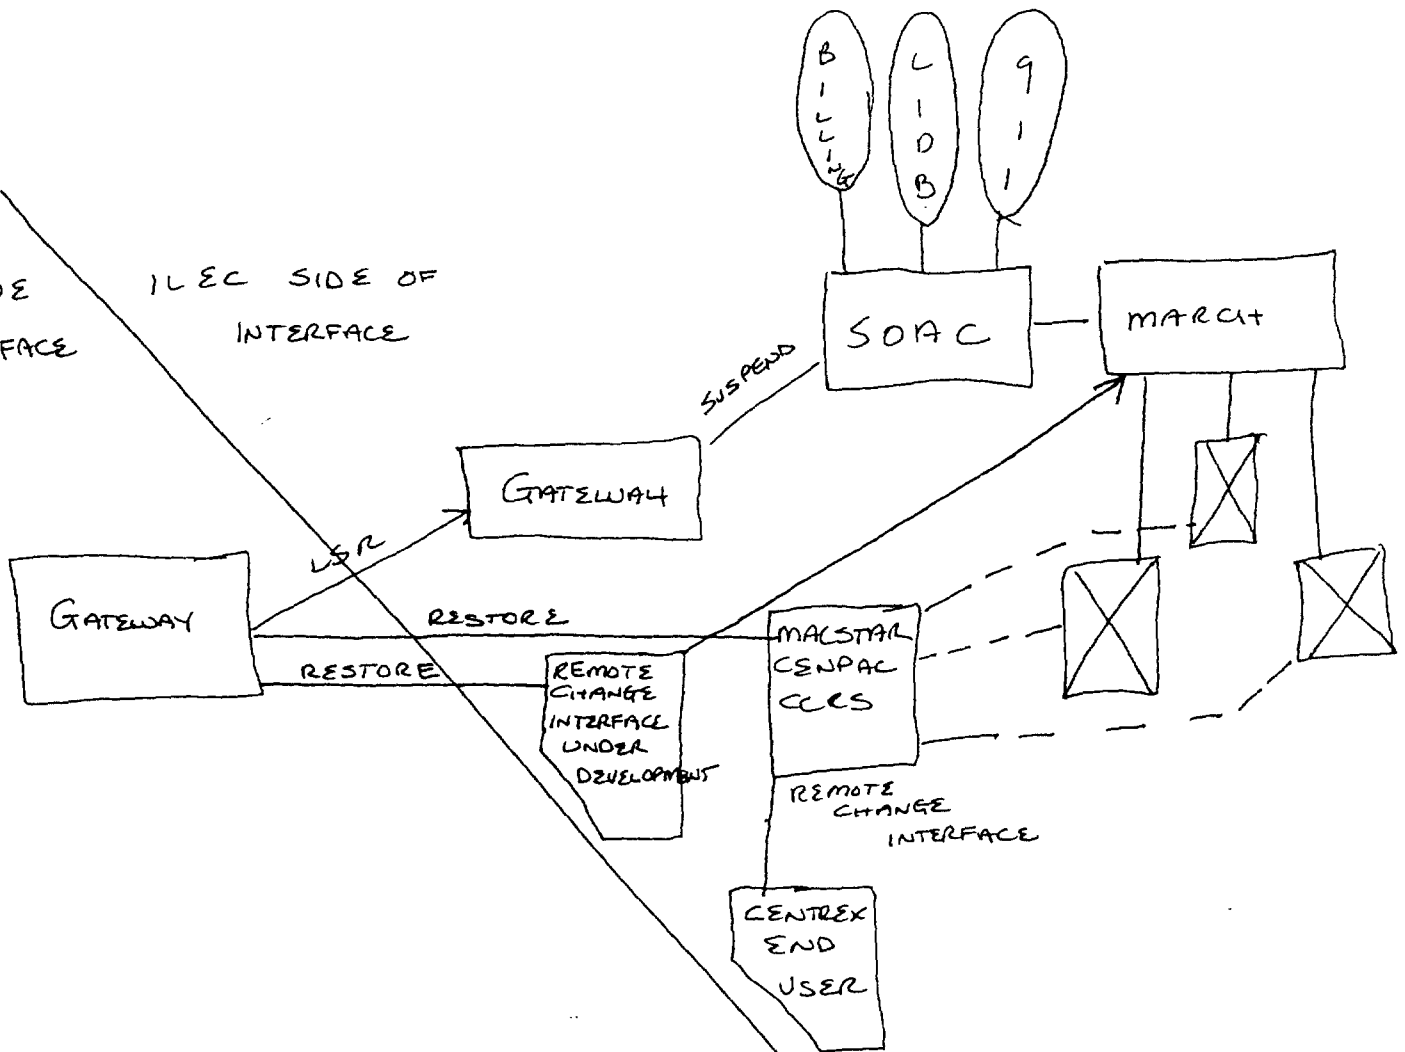 BILLING
LIDB
911
ILEC SIDE OF
INTERFACE
FACE
SOAC
MARCH
SUSPEND
GATEWAY
LSR
GATEWAY
RESTORE
RESTORE
REMOTE
CHANGE
INTERFACE
UNDER
DEVELOPMENT
MACSTAR
CENPAC
CCRS
REMOTE
CHANGE
INTERFACE
CENTREX
END
USER